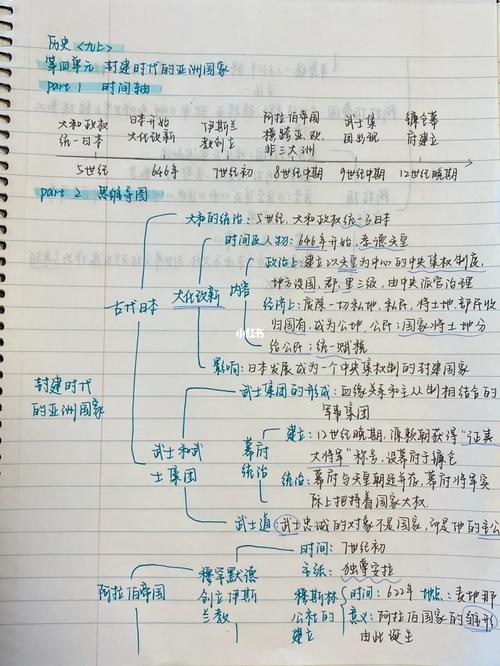 历史<九上>
第四单元 封建时代的亚洲国家
part 1 时间轴
大和政权统一日本
日本开始大化改新
伊斯兰教创立
阿拉伯帝国横跨亚、欧、非三大洲
武士集团出现
镰仓幕府建立
5世纪
646年
7世纪初
8世纪中期
9世纪中期
12世纪晚期
part 2 思维导图
封建时代的亚洲国家
古代日本
大和的统治：5世纪，大和政权统一了日本
大化改新
时间及人物：646年开始，孝德天皇
内容
政治上：建立以天皇为中心的中央集权制度，
地方设国、郡、里三级，由中央派官治理
经济上：废除一切私地、私民，将土地、部民收
归国有，成为公地、公民；国家将土地分
给公民；统一赋税
影响：日本发展成为一个中央集权制的封建国家
武士和武士集团
武士集团的形成：血缘关系和主从制相结合的
军事集团
幕府统治
建立：12世纪晚期，源赖朝获得“征夷
大将军”称号，设幕府于镰仓
统治：幕府与天皇朝廷并存，幕府将军实
际上把持着国家大权
武士道：武士忠诚的对象不是国家，而是他的主公
阿拉伯帝国
穆罕默德创立伊斯兰教
时间：7世纪初
主张：独尊安拉
穆斯林公社的建立
时间：622年 地点：麦地那
意义：阿拉伯国家的雏形
由此诞生
小红书